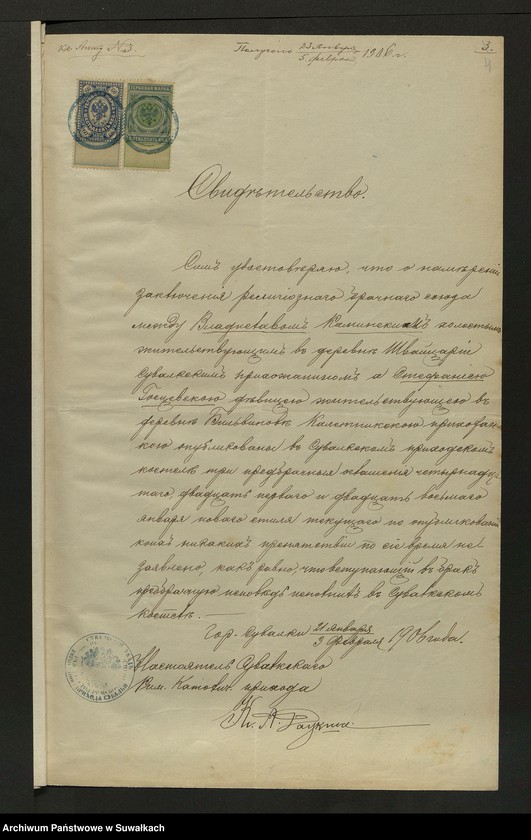 Кл. Аллег. № 3.
Получено 23 Января / 5 Февраля 1906 г.
3.
4
ГЕРБОВАЯ МАРКА
Свидѣтельство.
Симъ удостовѣряю, что о намѣреніи
заключенія религіознаго брачнаго союза
между Владиславомъ Калиновскимъ холостымъ
жительствующимъ въ деревнѣ Швайцаріи
Сувалкскимъ прихожаниномъ а Стефаніею
дѣвицею жительствующею въ
деревнѣ Вильвиновъ Калетникскою прихожан-
кою опубликованы въ Сувалкскомъ приходскомъ
костелѣ три предбрачныя оглашенія четырнадца-
таго, двадцать перваго и двадцать восьмаго
января новаго стиля текущаго по
коихъ никакихъ препятствій по сіе время не
заявлено, какъ равно, что вступающій въ бракъ
предбрачную исповѣдь исполнилъ въ Сувалкскомъ
костелѣ.
Гор. Сувалки 21 января / 3 февраля 1906 года.
Настоятель Сувалкскаго
Рим. Католич. прихода
Кс. А.
Archiwum Państwowe w Suwałkach